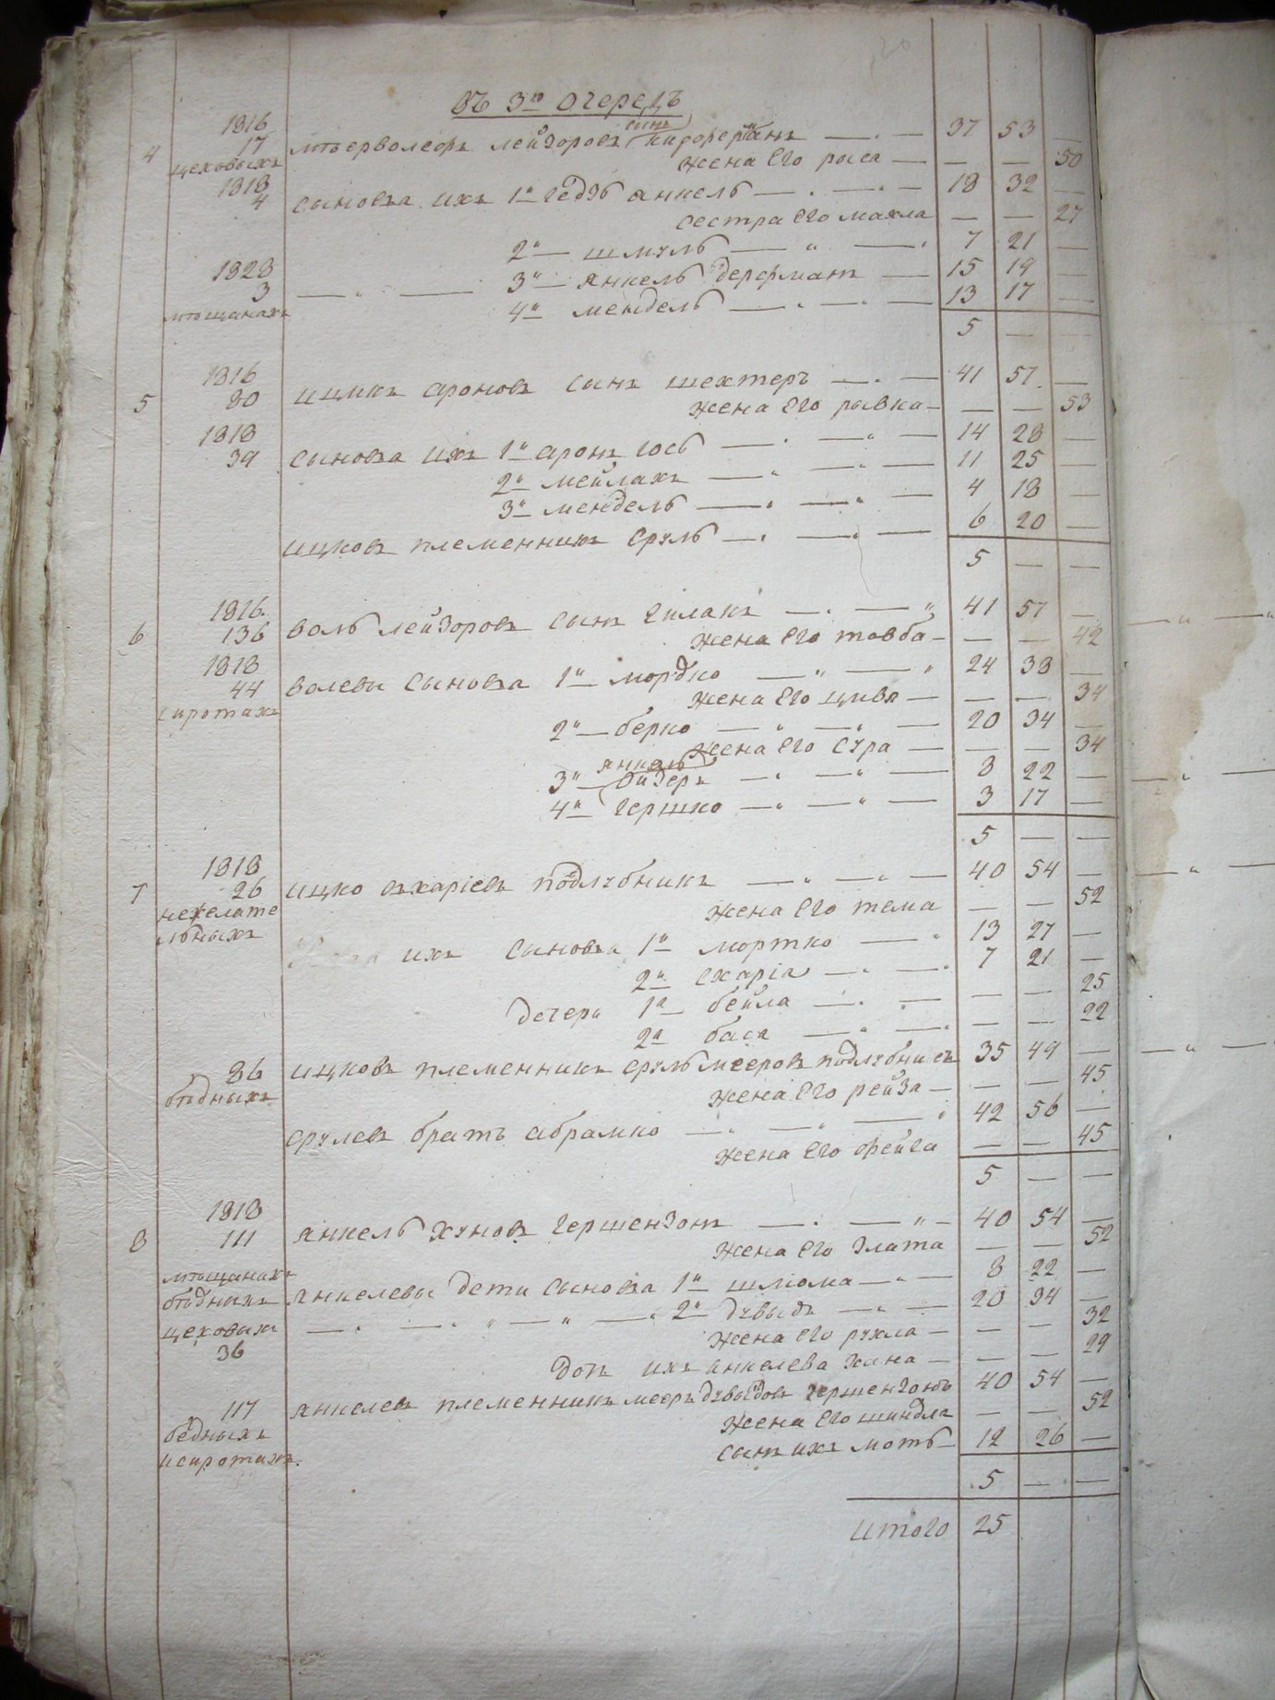 Въ 3ю Очередь
1816
4 17 Мѣерволефъ Лейзоровъ сынъ — 37 53 —
цеховыхъ жена Его рыся — — — 50
1818
4 сыновья ихъ 1й Гедзъ Янкель — 18 32 —
сестра Его махля — — 27
2й — шмуль — „ — 7 21 —
1828
3 — „ — 3й — Янкель Дерфманъ — 15 19 —
мѣщанахъ 4й мендель — „ — 13 17 —
5 — —
1816
5 80 ицикъ Ароновъ сынъ шехтеръ — 41 57 —
жена Его рывка — — — 53
1818
39 сыновья ихъ 1й аронъ Іось — 14 28 —
2й мейлахъ — „ — 11 25 —
3й мендель — „ — 4 18 —
ицковъ племенникъ Сруль — „ — 6 20 —
5 — —
1816
6 136 воль лейзоровъ сынъ — 41 57 —
жена Его товба — — — 42
1818
44 волевы сыновья 1й мордко — „ — 24 38 —
сиротахъ жена Его цивя — — — 34
2й — берко — „ — 20 34 —
жена Его Сура — — — 34
янкель
3й — — „ — 8 22 —
4й Гершко — „ — 3 17 —
5 — —
1818
7 26 ицко схаріевъ подлубникъ — „ — 40 54 —
нежелате жена Его тема — — 52
льныхъ
ихъ сыновья 1й мортко — „ 13 27 —
2й схаріа — „ — 7 21 —
дочери 1я бейла — „ — — — 25
2я бася — „ — — — 22
86 ицковъ племенникъ сруль мееровъ подлубникъ 35 49 —
бѣдныхъ жена Его рейза — — — 45
срулевъ братъ абрамко — „ — 42 56 —
жена Его фейга — — 45
5 — —
1818
8 111 янкель хуновъ Гершензонъ — „ — 40 54 —
жена Его Злата — — 52
мѣщанахъ янкелевы дети сыновья 1й шліома — „ — 8 22 —
бѣдныхъ — „ — „ — „ 2й дувыдъ — „ — 20 34 —
цеховыхъ жена Его рухля — — — 32
36 дочь ихъ янкелева хана — — — 29
117 янкелевъ племенникъ мееръ дувыдовъ гершензонъ 40 54 —
бедныхъ жена Его шиндля — — 52
и сиротахъ. сынъ ихъ моть — 12 26 —
5 — —
итого 25